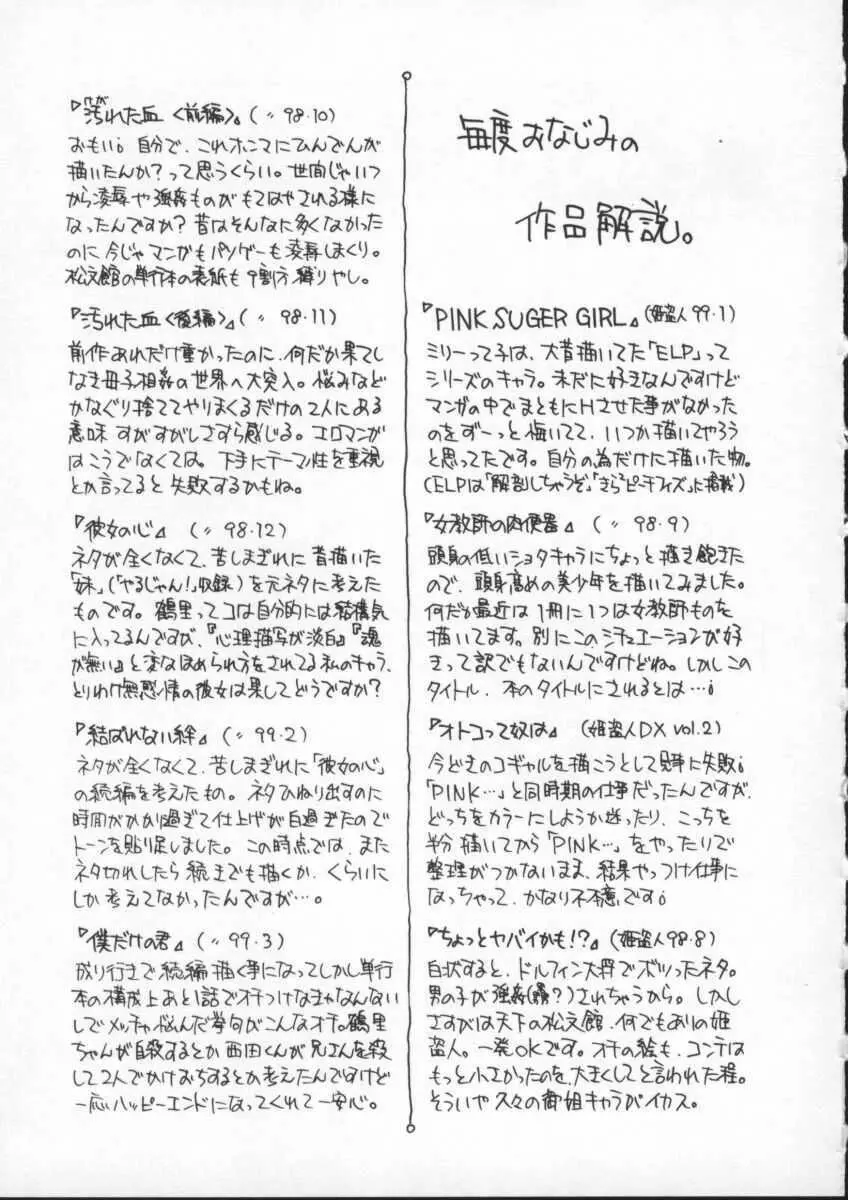 毎度おなじみの
作品解説。
『PINK SUGER GIRL』(姫盗人99・1)
ミリーって子は、大昔描いてた「ELP」って
シリーズのキャラ。未だに好きなんですけど
マンガの中でまともにHさせた事がなかった
のをずーっと悔いてて、いつか描いてやろう
と思ってたです。自分の為だけに描いた物。
(ELPは「解剖しちゃうぞ」「きら²ピーチフィズ」に掲載)
『女教師の肉便器』(〃 98・9)
頭身の低いショタキャラにちょっと描き飽きた
ので、頭身高めの美少年を描いてみました。
何だか最近は1冊に1つは女教師ものを
描いてます。別にこのシチュエーションが好
きって訳でもないんですけどね。しかしこの
タイトル、本のタイトルにされるとは…!
『オトコって奴は』(姫盗人DX vol.2)
今どきのコギャルを描こうとして見事に失敗!
「PINK…」と同時期の仕事だったんですが、
どっちをカラーにしようか迷ったり、こっちを
半分描いてから「PINK…」をやったりで
整理がつかないまま、結果やっつけ仕事に
なっちゃって、かなり不本意です!
『ちょっとヤバイかも!?』(姫盗人98・8)
白状すると、ドルフィン大将でボツったネタ。
男の子が強姦(?)されちゃうから。しかし
さすがは天下の松文館、何でもありの姫
盗人。一発OKです。オチの絵も、コンテは
もっと小さかったのを、大きくしてと言われた程。
そういや久々の御姐キャラがイカス。
『汚れた血〈前編〉』(〃 98・10)
おもい! 自分で、これホンマにひんでんが
描いたんか?って思うくらい。世間じゃいつ
から凌辱や強姦ものがもてはやされる様に
なったんですか?昔はそんなに多くなかった
のに今じゃマンガもパソゲーも凌辱しまくり。
松文館の単行本の表紙も9割方縛りやし。
『汚れた血〈後編〉』(〃 98・11)
前作あれだけ重かったのに、何だか果てし
なき母子相姦の世界へ大突入。悩みなど
かなぐり捨ててやりまくるだけの2人にある
意味すがすがしさすら感じる。エロマンガ
はこうでなくては。下手にテーマ性を重視
とか言ってると失敗するかもね。
『彼女の心』(〃 98・12)
ネタが全くなくて、苦しまぎれに昔描いた
「妹」(「やるじゃん!」収録)を元ネタに考えた
ものです。鶴里ってコは自分的には結構気
に入ってるんですが、『心理描写が淡白』『魂
が無い』と変なほめられ方をされてる私のキャラ、
とりわけ無感情の彼女は果してどうですか?
『結ばれない絆』(〃 99・2)
ネタが全くなくて、苦しまぎれに「彼女の心」
の続編を考えたもの。ネタひねり出すのに
時間がかかり過ぎて仕上げが白過ぎたので
トーンを貼り足しました。この時点では、また
ネタ切れしたら続きでも描くか、くらいに
しか考えてなかったんですが…。
『僕だけの君』(〃 99・3)
成り行きで続編描く事になってしかし単行
本の構成上あと1話でオチつけなきゃなんない
しでメッチャ悩んだ挙句がこんなオチ。鶴里
ちゃんが自殺するとか西田くんが兄さんを殺
して2人でかけおちするとか考えたんですけど
一応ハッピーエンドになってくれて一安心。